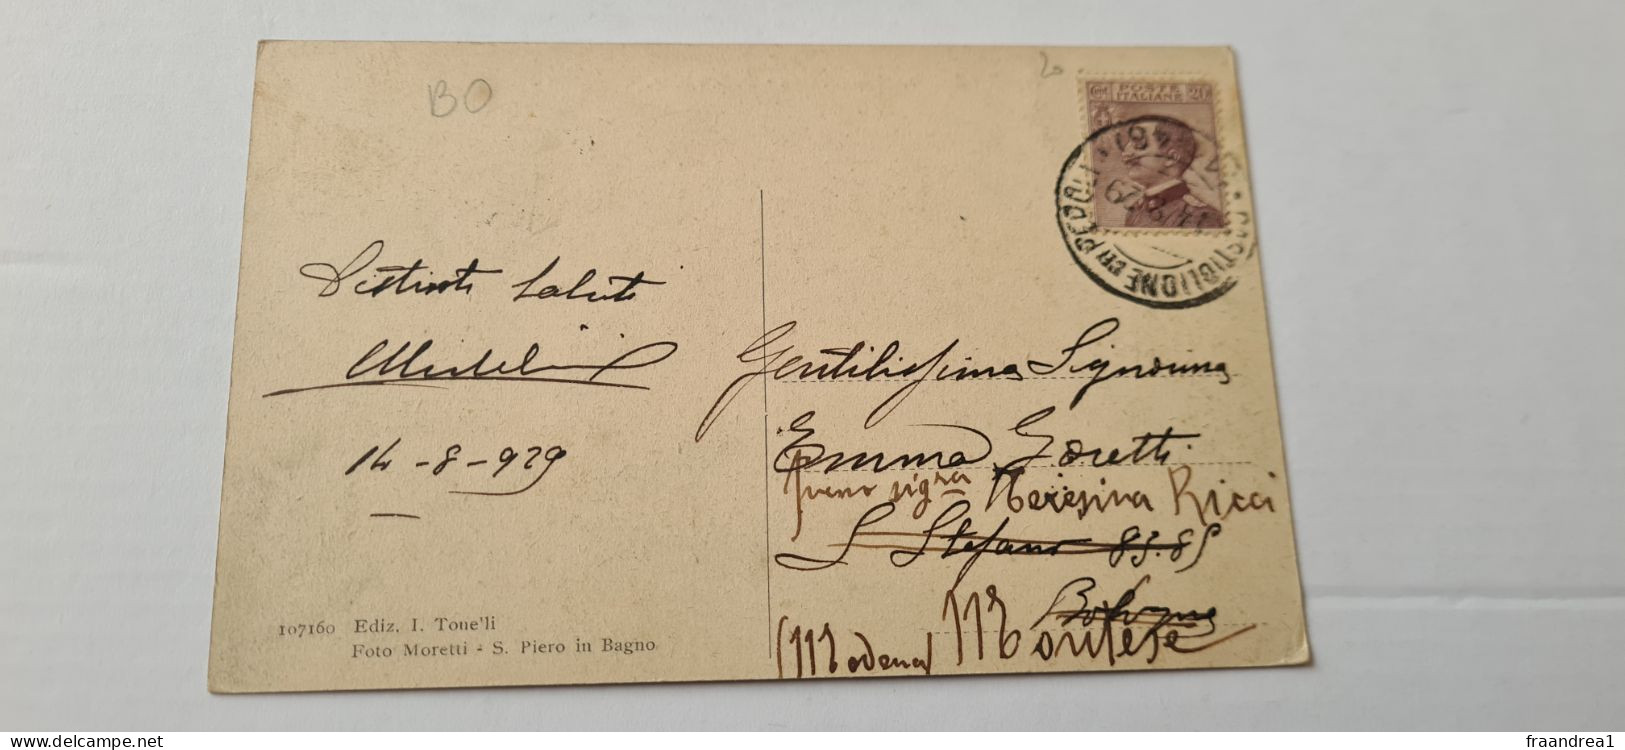 BO
20
Cent POSTE ITALIANE 20
CASTIGLIONE DEI PEPOLI
Distinti saluti
14-8-929
Gentilissima Signorina
Emma Goretti
presso sigra Teresina Ricci
S. Stefano 83.85
Bologna
(Modena) Montese
107160 Ediz. I. Tone'li
Foto Moretti - S. Piero in Bagno
www.delcampe.net
fraandrea1